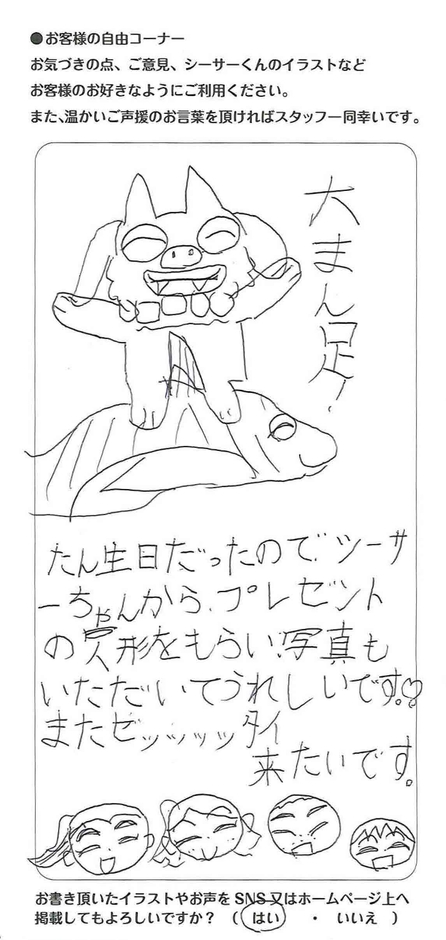 ●お客様の自由コーナー
お気づきの点、ご意見、シーサーくんのイラストなど
お客様のお好きなようにご利用ください。
また、温かいご声援のお言葉を頂ければスタッフ一同幸いです。
大まん足!
たん生日だったので、ツーサ
ーちゃんから、プレゼント
の人形をもらい、写真も
いただいてうれしいです。♡
またゼッッッッタイ
来たいです。
お書き頂いたイラストやお声をSNS又はホームページ上へ
掲載してもよろしいですか? ( はい ・ いいえ )